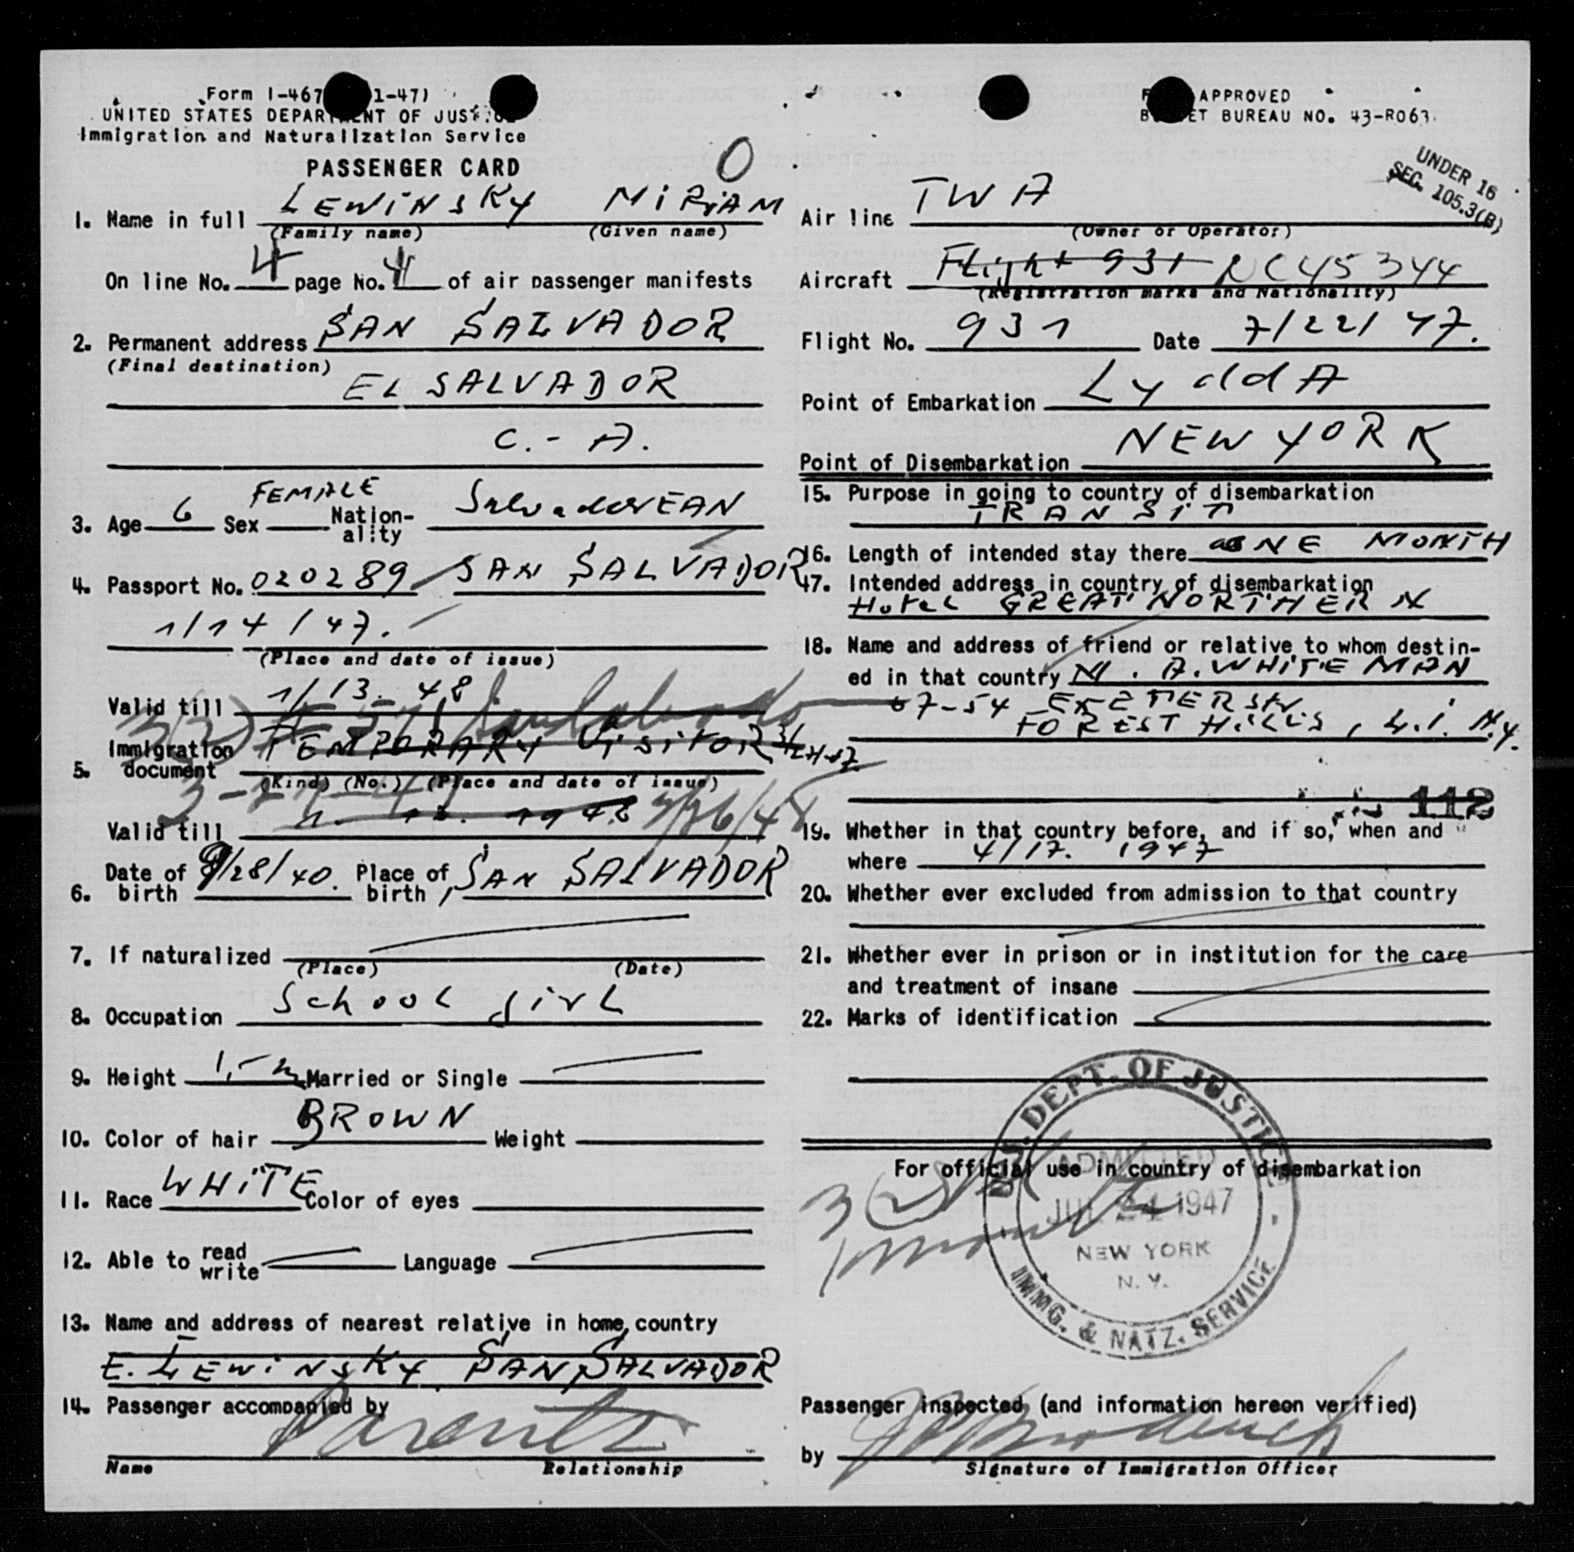 Form I-467 1-47)
UNITED STATES DEPARTMENT OF JUSTICE
Immigration and Naturalization Service
PASSENGER CARD
0
FORM APPROVED
BUDGET BUREAU NO. 43-R063.
UNDER 16
SEC. 105.3(B)
1. Name in full LEWiNSKY MiRiAM
(Family name) (Given name)
On line No. 4 page No. 4 of air passenger manifests
2. Permanent address SAN SALVADOR
(Final destination)
EL SALVADOR
C.- A.
3. Age 6 Sex FEMALE Nation-ality SalvadorEAN
4. Passport No. 020289 SAN SALVADOR
1/14/47.
(Place and date of issue)
Valid till 1/13-48
3(2) San Salvador
5. Immigration document TEMPORARY ViSiTOR
(Kind) (No.) (Place and date of issue)
Valid till 1948 3/26/48
6. Date of birth 9/28/40. Place of birth SAN SALVADOR
7. If naturalized
(Place) (Date)
8. Occupation School girL
9. Height Married or Single
10. Color of hair BROWN Weight
11. Race WHiTE Color of eyes
12. Able to read write Language
13. Name and address of nearest relative in home country
E. LEWiNSKY SAN SALVADOR
14. Passenger accompanied by
Parents
Name Relationship
Air line TWA
(Owner or Operator)
Aircraft Flight 931 NC45344
(Registration marks and Nationality)
Flight No. 931 Date 7/22/47.
Point of Embarkation LyddA
Point of Disembarkation NEW YORK
15. Purpose in going to country of disembarkation
TRANSiT
16. Length of intended stay there ONE MONTH
17. Intended address in country of disembarkation
HoteL GREAT NORTHERN
18. Name and address of friend or relative to whom destin-
ed in that country M. A. WHiTEMAN
67-54 EXETER Str.
FOREST HiLLS, L.I. N.Y.
112
19. Whether in that country before, and if so, when and
where 4/17. 1947
20. Whether ever excluded from admission to that country
21. Whether ever in prison or in institution for the care
and treatment of insane
22. Marks of identification
For official use in country of disembarkation
3(2)
1 month
U.S. DEPT. OF JUSTICE
ADMITTED
JUL 24 1947
NEW YORK
N. Y.
IMMG. & NATZ. SERVICE
Passenger inspected (and information hereon verified)
by
Signature of Immigration Officer